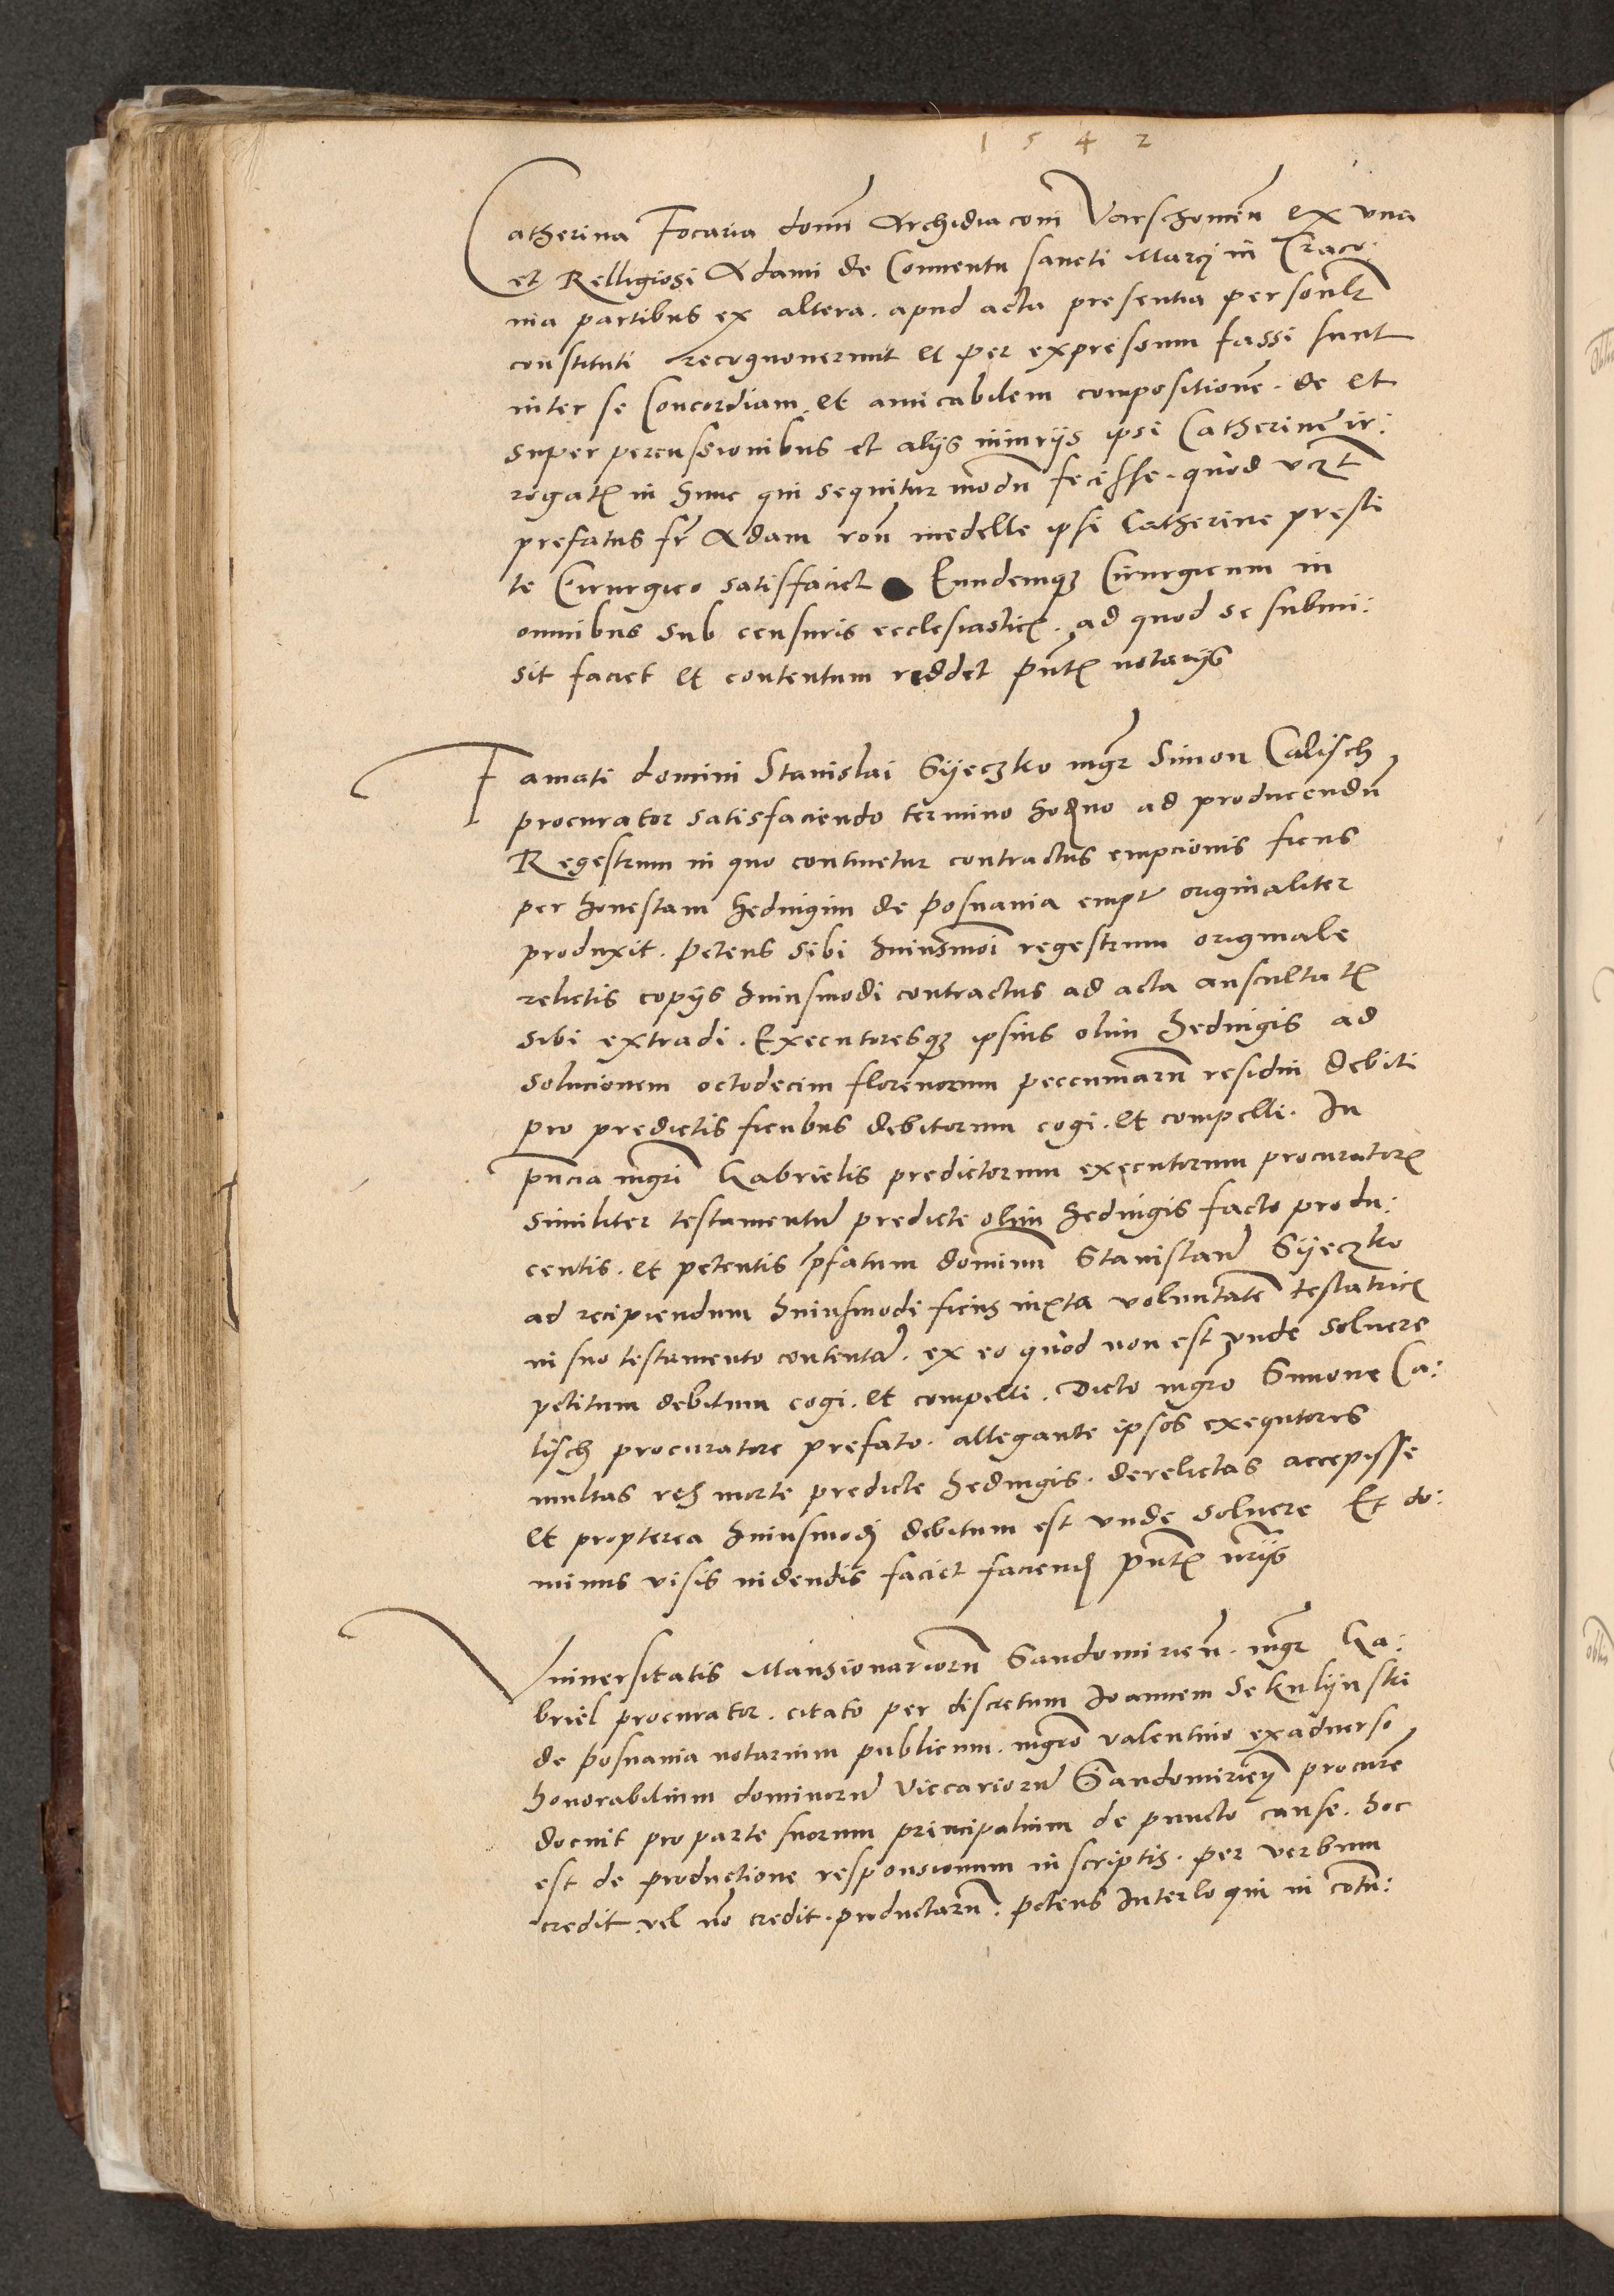 1 5 4 2
Catherina Focaria domn Archidiaconi Varschouien ex vna
et Relligiosi Adami de Conuentu sancti Marci in Craco:
uia partibus ex altera. apud acta presentia personlr
constituti recognouerunt et per expressum fassi sunt
inter se Concordiam et amicabilem compositionem. de et
super percussionibus et alijs iniurijs ipsi Catherine ir:
rogatis in hunc qui sequitur modum fecisse. quod vczt
prefatus fr Adam ron medelle ipsi Catherine presti
te Cirurgico satisfaciet Eundemque Cirurgicum in
omnibus sub censuris ecclesiasticis. ad quod se submi:
sit faciet et contentum reddet pntibus notarijs
Famati domini Stanislai Syeczko mgr Simon Calisch
procurator satisfaciendo termino hodierno ad producendum
Regestrum in quo continetur contractus empcionis ficus
per honestam Hedwigim de Posnania empte originaliter
produxit. petens sibi huiusmoi regestrum originale
relictis copijs huiusmodi contractus ad acta auscultatis
sibi extradi. Executoresque ipsius olim Hedwigis ad
solucionem octodecim florenorum peccuniarum residui debiti
pro predictis ficubus debitorum cogi. et compelli. In
pncia mgri Gabrielis predictorum executorum procuratoris
similiter testamentum predicte olim Hedwigis facto produ:
centis. et petentis pfatum dominum Stanislaum Syeczko
ad recipiendum huiusmodi ficus iuxta voluntatem testatricis
in suo testamento contentam. ex eo quod non est vnde soluere
petitum debitum cogi. et compelli. Dicto mgro Simone Ca:
lisch procuratore prefato. allegante ipsos exequtores
multas res morte predicte Hedwigis. derelictas accepisse
et propterea huiusmodi debitum est vnde soluere Et do:
minus visis uidendis faciet faciend pntibus nrijs
Vniuersitatis Mansionariorum Sandomirien. mgr Ga:
briel procurator. citato per discretum Ioannem Sekulynski
de Posnania notarium publicum. mgro valentino exaduerso
honorabilium dominorum Viccariorum Sandomirien procure
docuit pro parte suorum principalium de puncto cause. hoc
est de productione responsionum in scriptis. per verbum
credit vel non credit. productarum. petens Interloqui in contu: